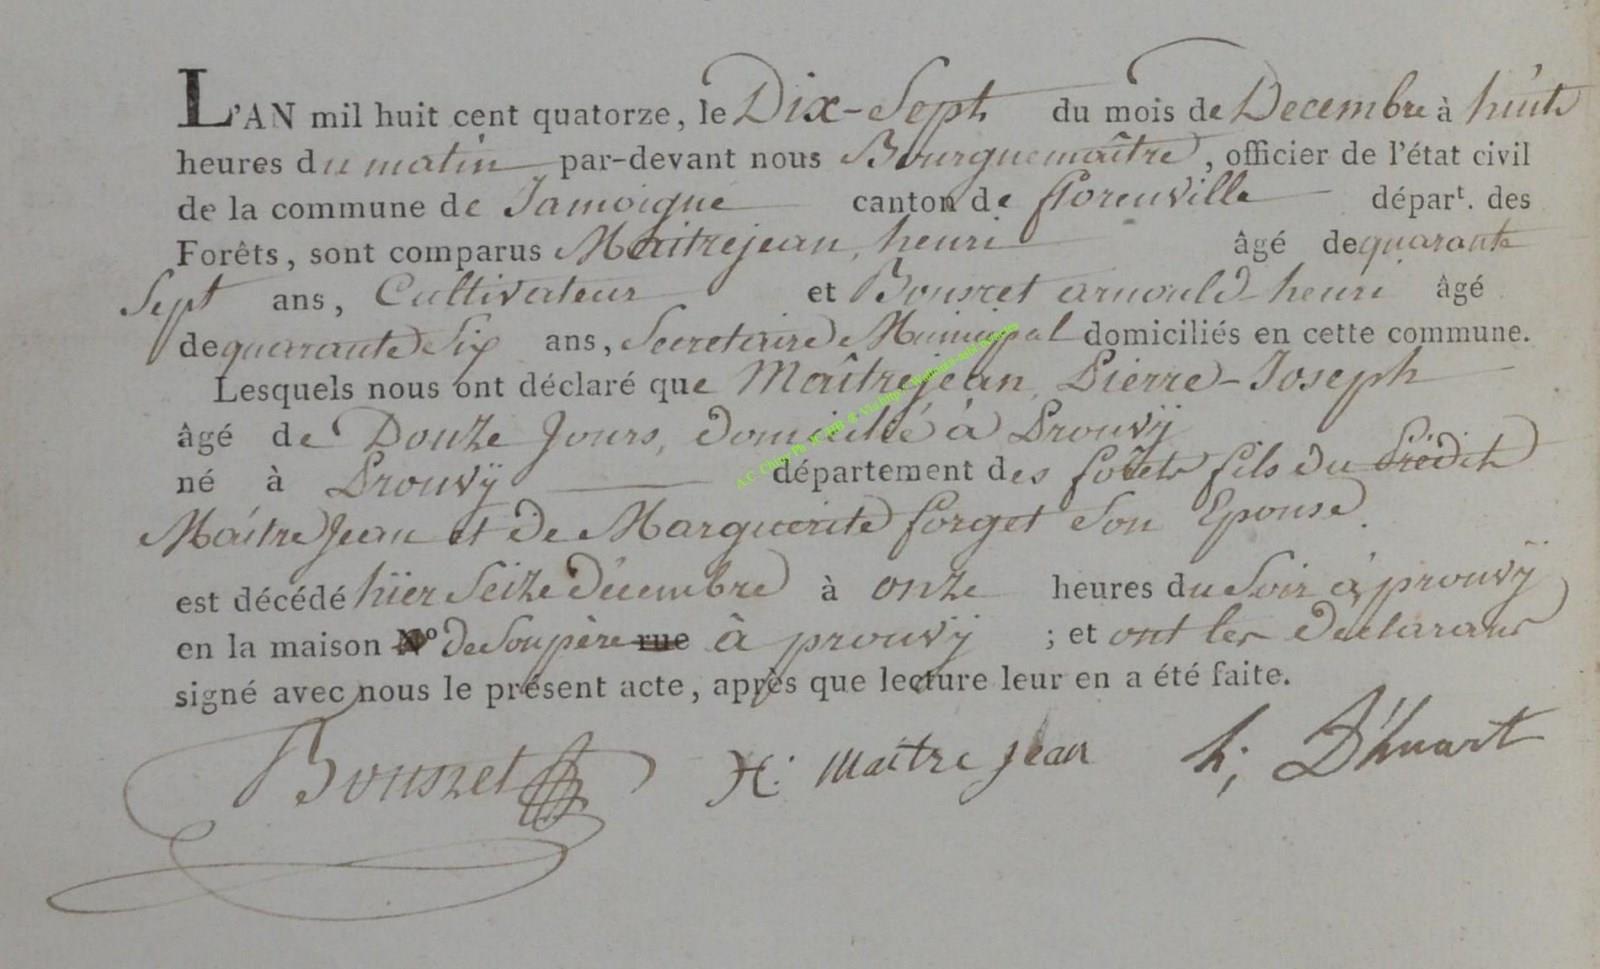 L'AN mil huit cent quatorze, le Dix-Sept du mois de Decembre à huit
heures du matin par-devant nous Bourguemaître, officier de l'état civil
de la commune de Jamoigne canton de florenville départ. des
Forêts, sont comparus Maitrejean, henri âgé de quarante
Sept ans, Cultivateur et Bousret arnould-henri âgé
de quarante Six ans, Secretaire Municipal domiciliés en cette commune.
Lesquels nous ont déclaré que Maîtrejean, Pierre-Joseph
âgé de Douze Jours, domicilié à Prouvÿ
né à Prouvÿ département des forêts fils du Prédit
Maître Jean et de Marguerite forget Son Epouse.
est décédé hïer Seize décembre à onze heures du Soir à prouvÿ
en la maison N° de Son père rue à prouvÿ ; et ont les declarans
signé avec nous le présent acte, après que lecture leur en a été faite.
Bousret H: Maitre jean h; D'huart